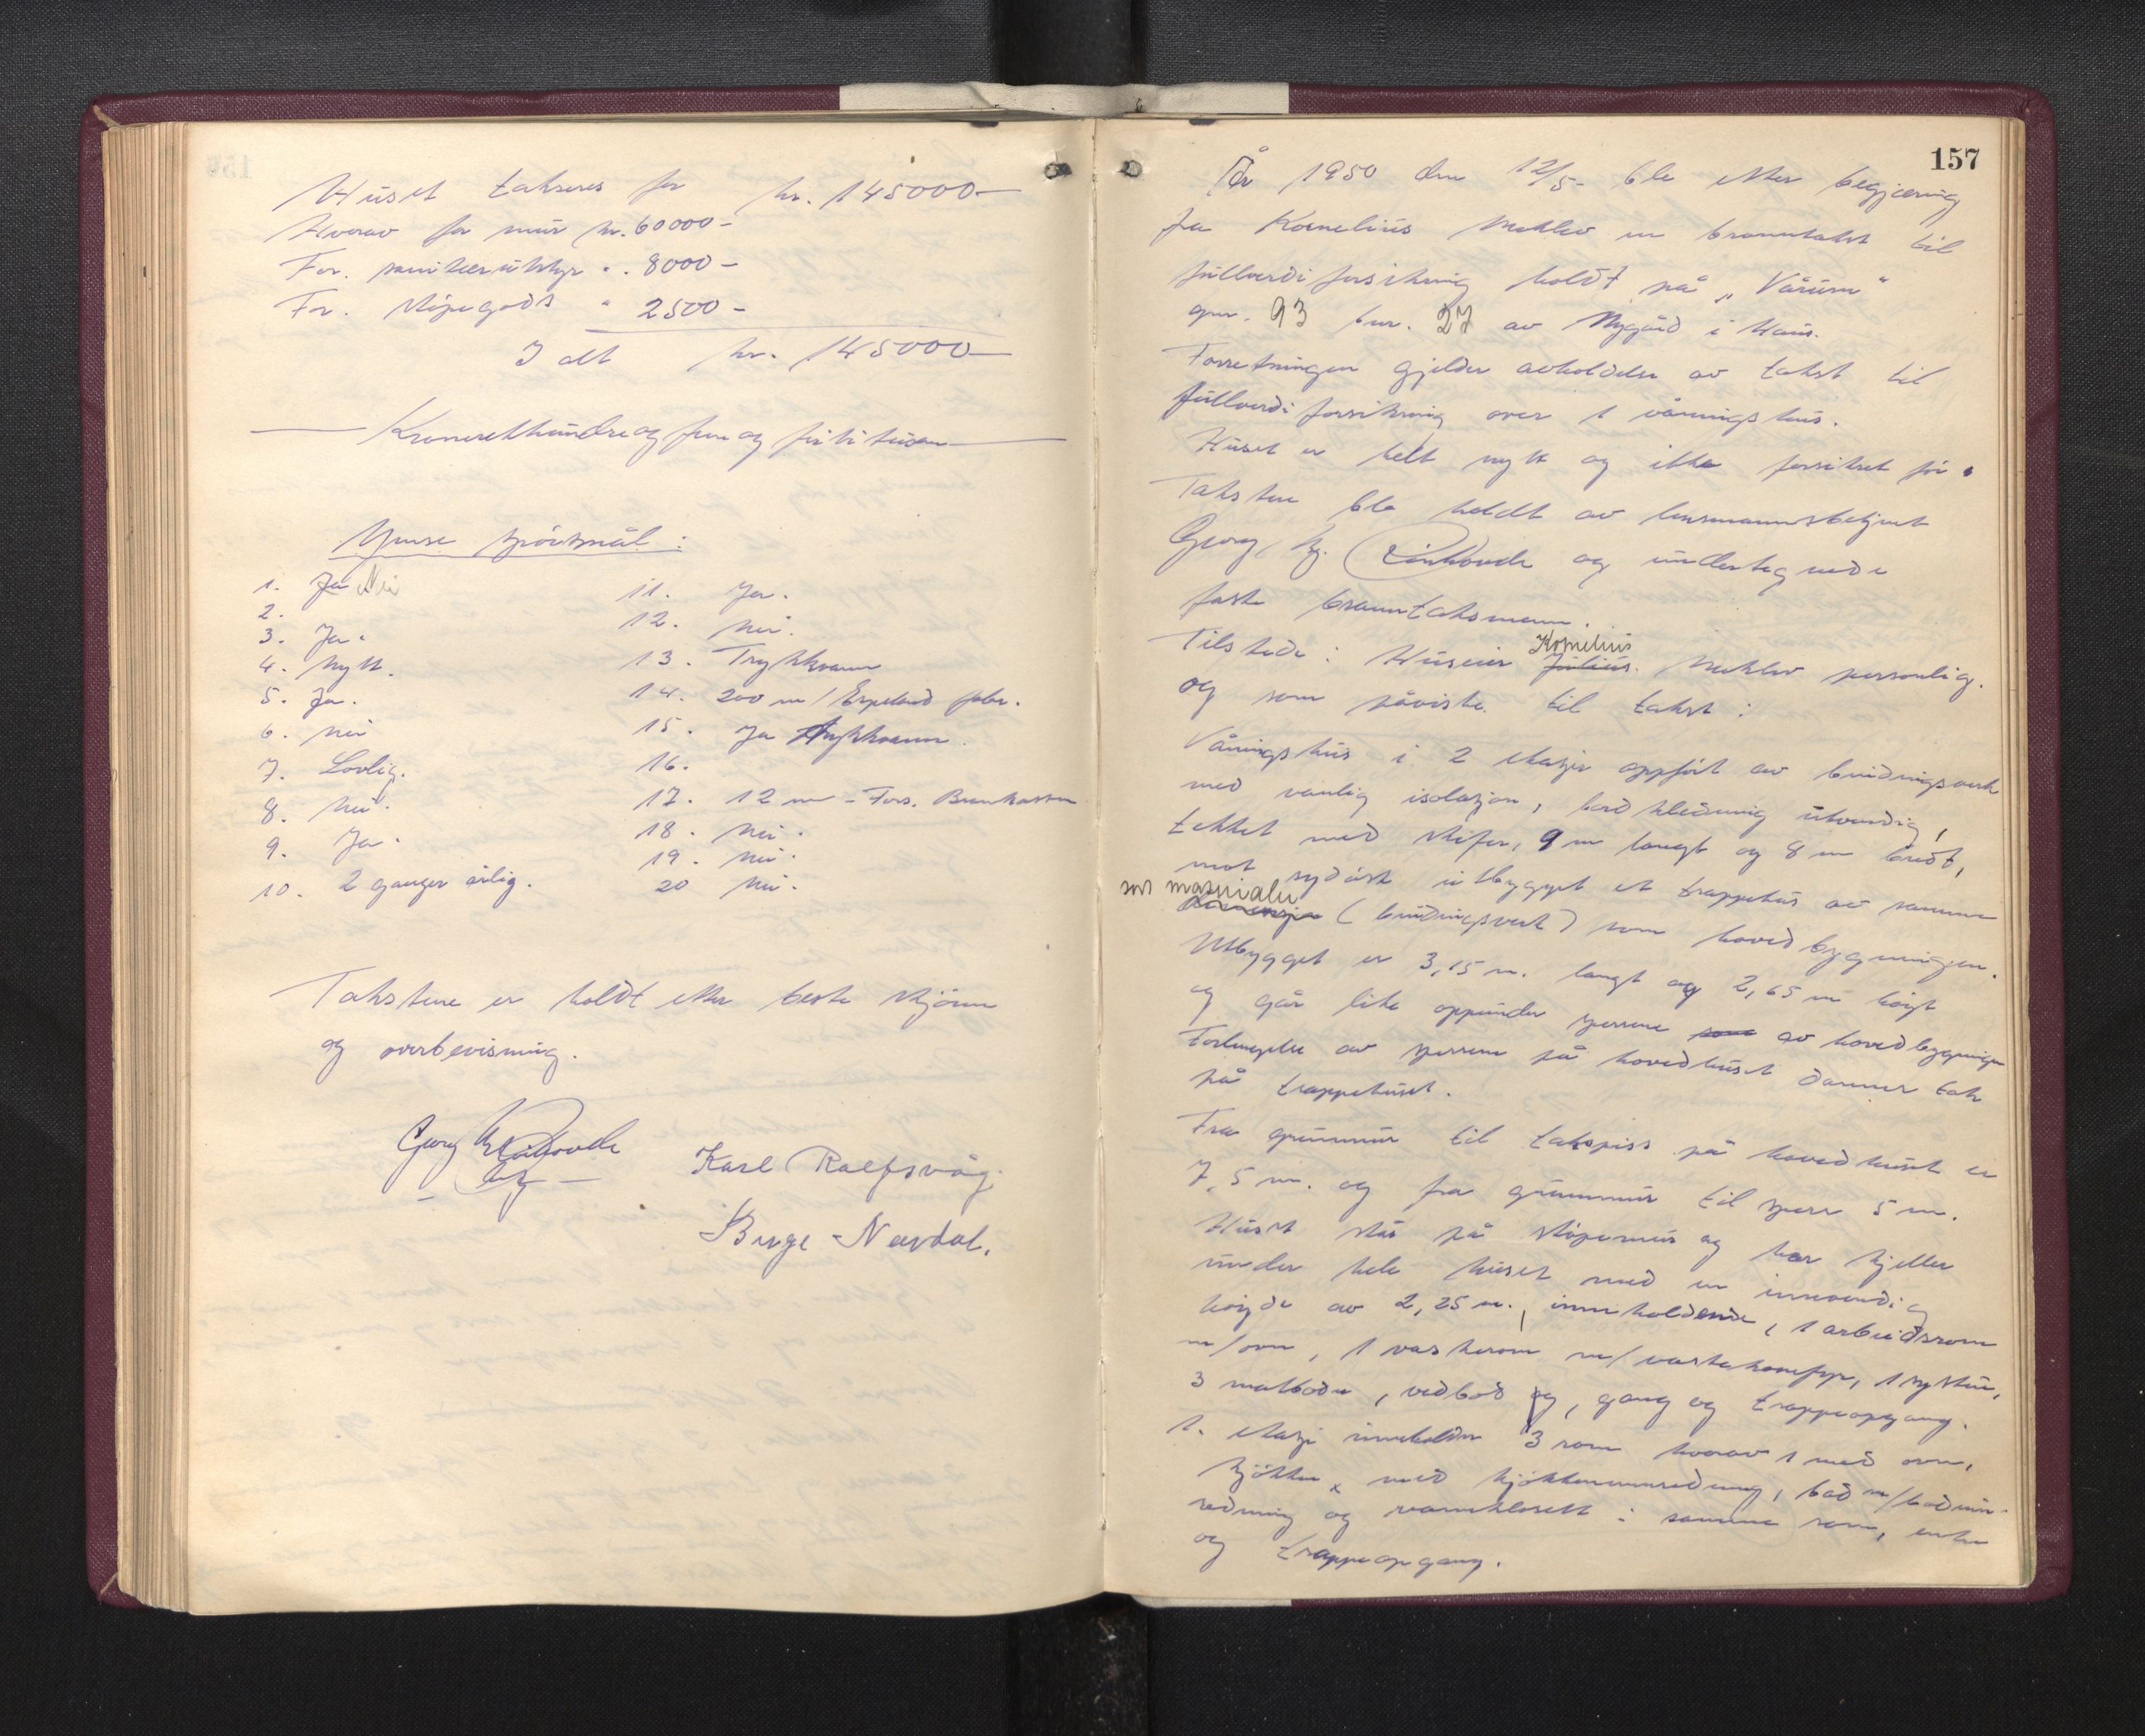 Huset takseres for kr. 145000-
Hvorav for mur kr. 60000-
For. sanitærutstyr " . 8000-
For. støpegods " 2500-
I alt kr. 145000-
Kroneretthundreogfemogførtitusen
Ymse spörsmål:
1. Ja Nei
2.
3. Ja.
4. Nytt.
5. Ja.
6. nei
7. Lovlig.
8. Nei.
9. Ja.
10. 2 ganger årlig.
11. Ja.
12. Nei.
13. Trykkvann
14. 200 m / Espeland fabr.
15. Ja trykkvann.
16.
17. 12 m - Fors. Brunkassen
18. Nei.
19. Nei.
20 Nei.
Takstene er holdt etter beste skjönn
og overbevisning.
Georg
Karl Rolfsvåg.
Birge Nævdal.
157
År 1950 den 12/5- ble etter begjæring
fra Kornelius Mæhlev en branntakst til
fullverdiforsikring holdt på „Vårum"
gnr. 93 bnr. 27 av Nygård i Haus.
Forretningen gjelder avholdelse av takst til
fullverdiforsikring over 1 våningshus.
Huset er helt nytt og ikke forsikret för.
Taksten ble holdt av lensmannsbetjent
Georg og undertegnede
faste branntaksmenn.
Tilstede: Huseier Julius. Kornelius personlig.
og som påviste til takst:
Våningshus i 2 etasjer oppfört av bindingsverk
med vanlig isolasjon, bordkledning utvendig,
tekket med skifer, 9 m langt og 8 m bredt,
mot sydöst utbygget et trappehus av samme
sos materialer (bindingsverk) som hovedbygningen.
Utbygget er 3,15 m. langt og 2,65 m höigt
og går like oppunder sperrene som av hovedbygningen
Forlengelse av sperrene på hovedhuset danner tak
på trappehuset.
Fra grunnmur til takspiss på hovedhuset er
7,5 m. og fra grunnmur til sperr 5 m.
Huset står på støpemur og har kjeller
under hele huset med en innvendig
höyde av 2,25 m., inneholdende, 1 arbeidsrom
m/ovn, 1 vaskerom m/vaskekomfyr, 1 systue,
3 matboder, vedbod og, gang og trappeopgang.
1. etasje inneholder 3 rom hvorav 1 med ovn,
kjökken med kjökkeninnredning, bad m/badeinn-
redning og vannklosett i samme rom, entre
og trappeopgang.